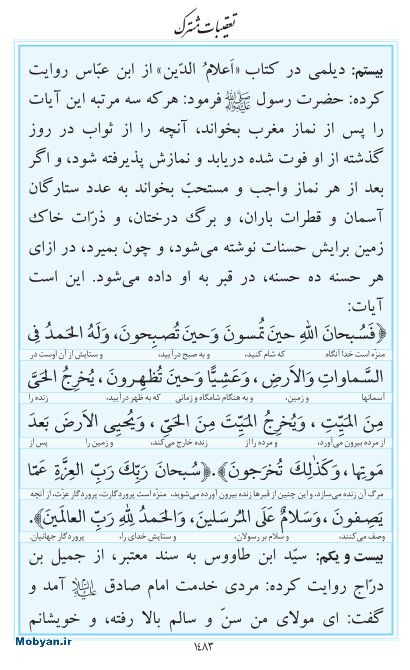 تعقیبات مشترک
بیستم: دیلمی در کتاب «اَعلامُ الدّین» از ابن عبّاس روایت
کرده: حضرت رسول ﷺ فرمود: هرکه سه مرتبه این آیات
را پس از نماز مغرب بخواند، آنچه را از ثواب در روز
گذشته از او فوت شده دریابد و نمازش پذیرفته شود، و اگر
بعد از هر نماز واجب و مستحبّ بخواند به عدد ستارگان
آسمان و قطرات باران، و برگ درختان، و ذرّات خاک
زمین برایش حسنات نوشته می‌شود، و چون بمیرد، در ازای
هر حسنه ده حسنه، در قبر به او داده می‌شود. این است
آیات:
﴿فَسُبحانَ اللهِ حینَ تُمسونَ وَحینَ تُصبِحونَ، وَلَهُ الحَمدُ فِی
منزّه است خدا آنگاه که شام کنید، و به صبح درآیید، و ستایش از آن اوست در
السَّماواتِ وَالاَرضِ، وَعَشِیًّا وَحینَ تُظهِرونَ، یُخرِجُ الحَیَّ
آسمانها و زمین، و به هنگام شامگاه و زمانی که به ظهر درآیید، زنده را
مِنَ المَیِّتِ، وَیُخرِجُ المَیِّتَ مِنَ الحَیِّ، وَیُحیِی الاَرضَ بَعدَ
از مرده بیرون می‌آورد، و مرده را از زنده خارج می‌کند، و زمین را پس از
مَوتِها، وَکَذٰلِكَ تُخرَجونَ﴾. ﴿سُبحانَ رَبِّكَ رَبِّ العِزَّةِ عَمّا
مرگ آن زنده می‌سازد، و این چنین از قبرها زنده بیرون آورده می‌شوید، منزه است پروردگارت، پروردگار عزّت، از آنچه
یَصِفونَ، وَسَلامٌ عَلَی المُرسَلینَ، وَالحَمدُ لِلّٰهِ رَبِّ العالَمینَ﴾.
وصف می‌کنند، و سلام بر رسولان، و ستایش خدای را، پروردگار جهانیان.
بیست و یکم: سیّد ابن طاووس به سند معتبر، از جمیل بن
درّاج روایت کرده: مردی خدمت امام صادق علیه‌السلام آمد و
گفت: ای مولای من سنّ و سالم بالا رفته، و خویشانم
۱۴۸۳
Mobyan.ir